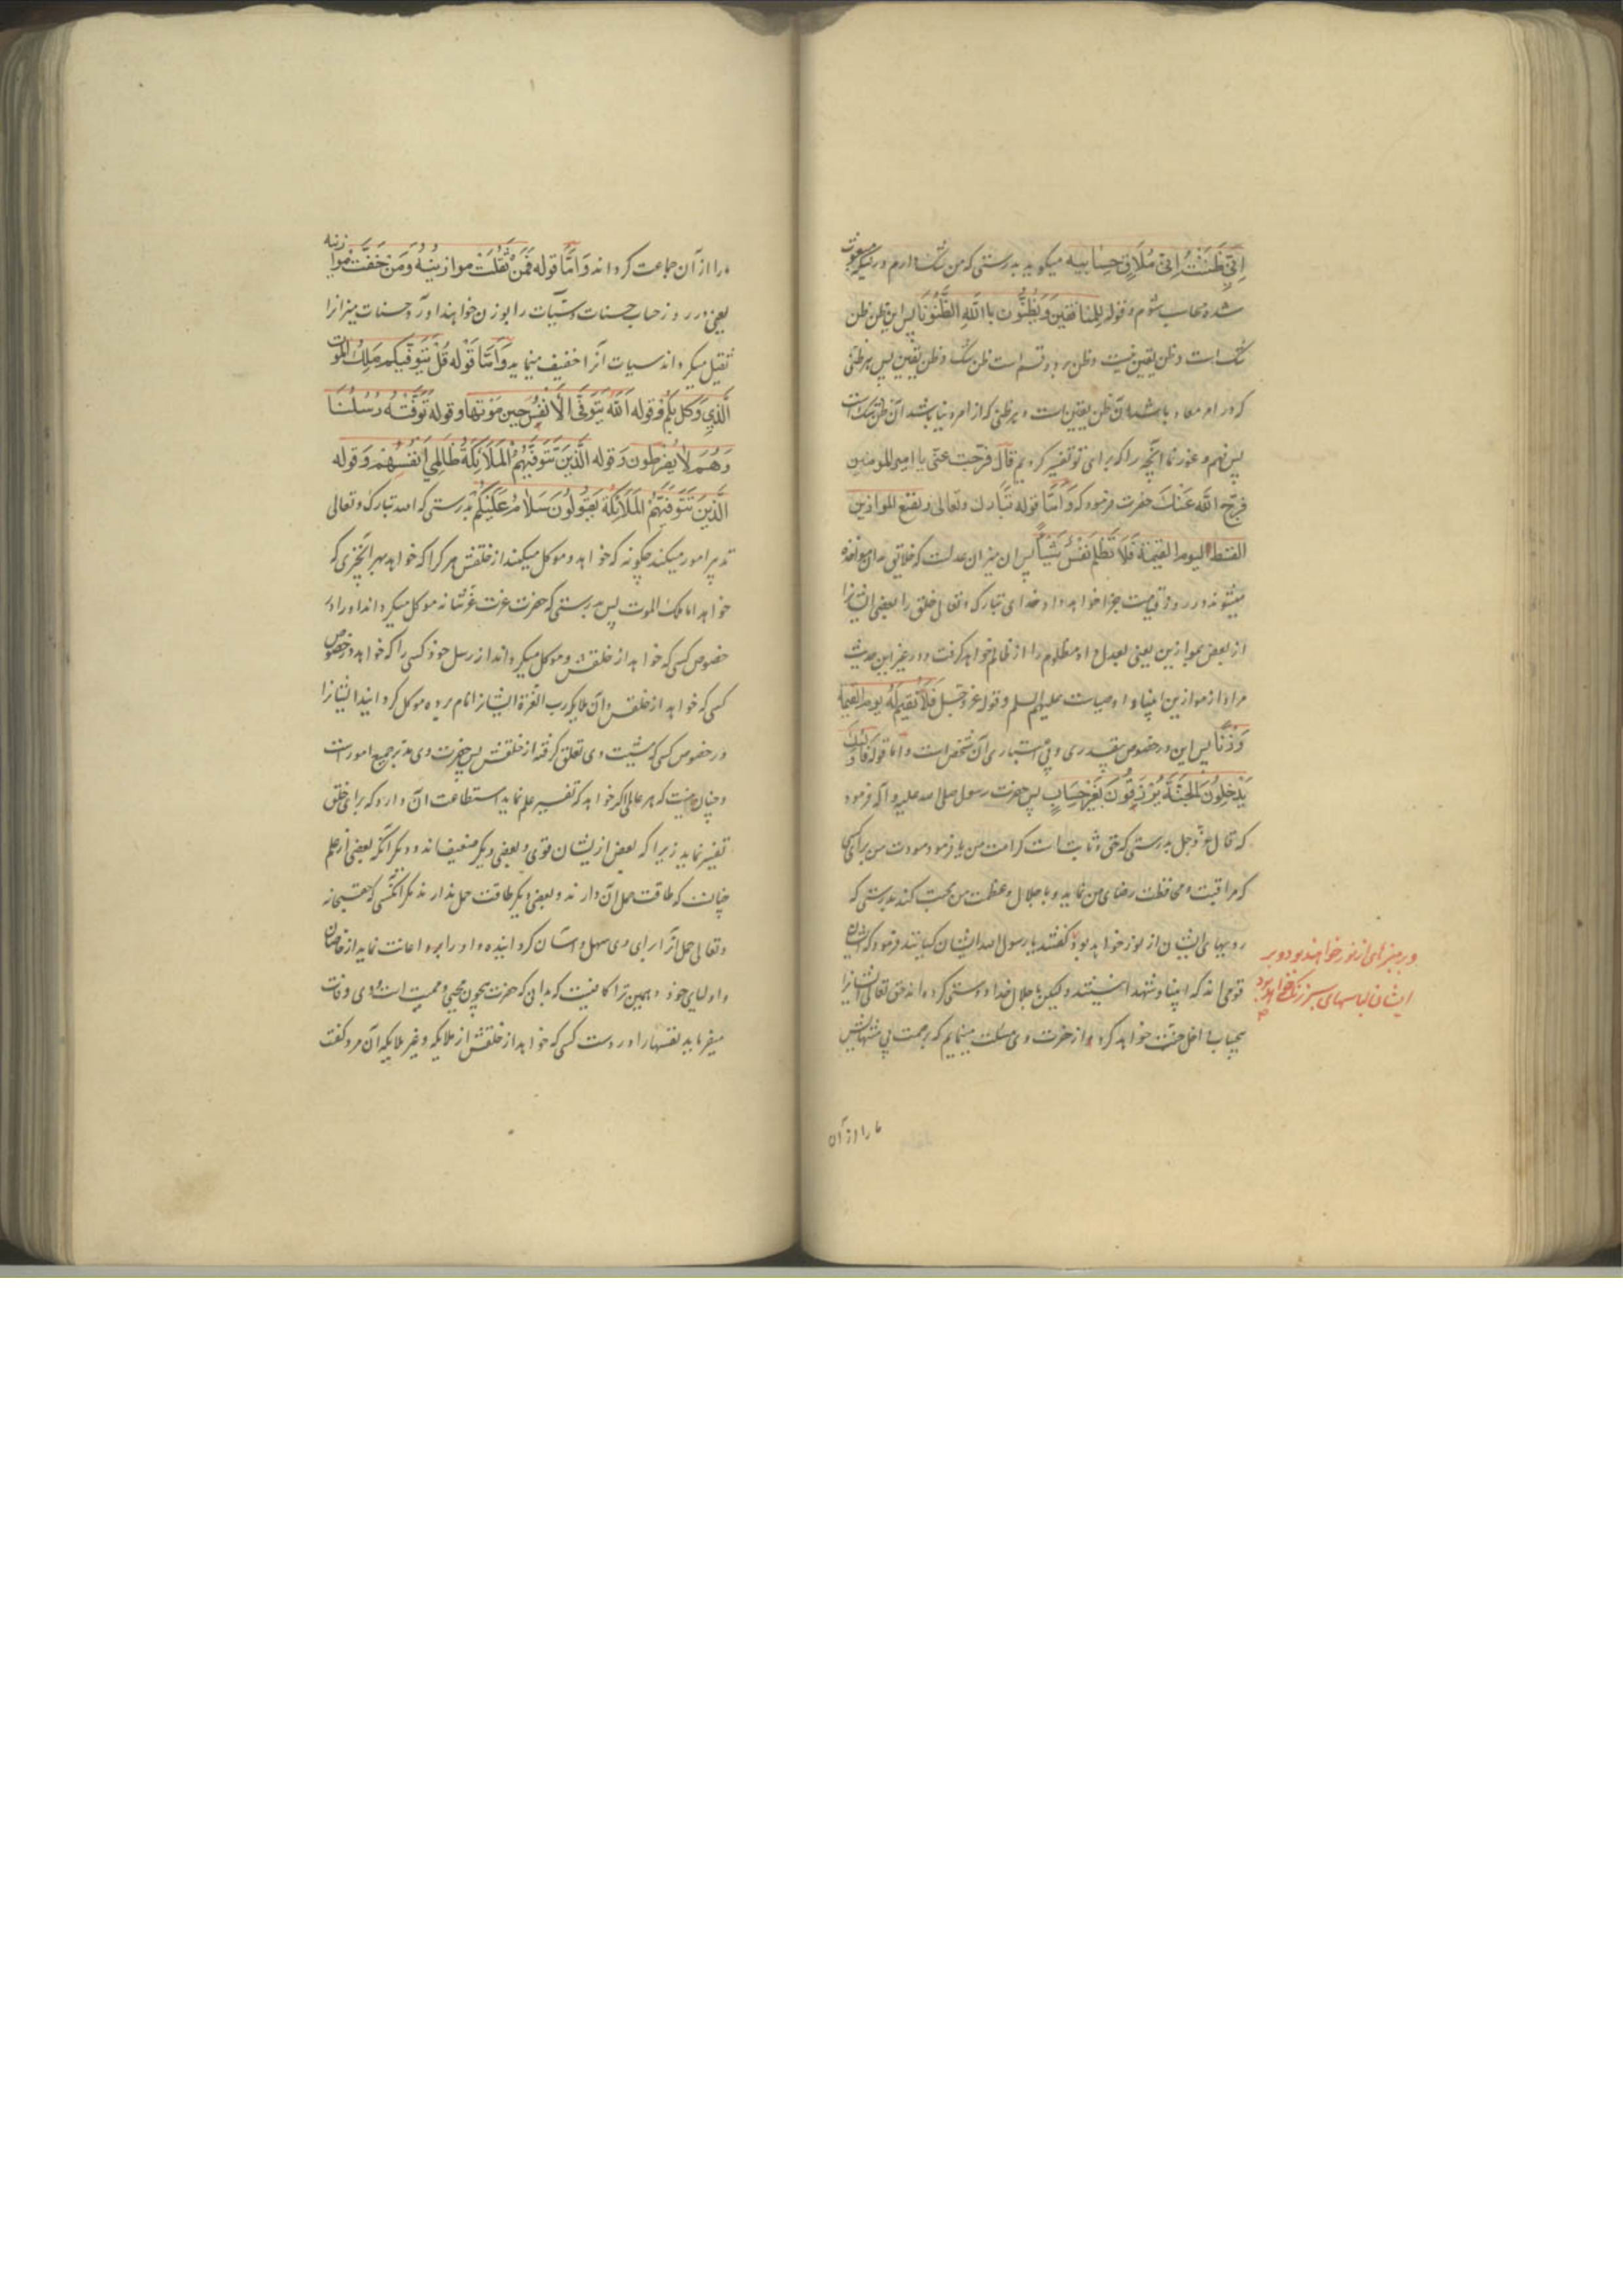 اِنّی ظَنَنْتُ اِنّی مُلَاقٍ حِسَابِیَه میکوید بدرستی که من شک ندارم در اینکه مبعوث
شده محاسب شوم و قوله للمنافقین وَ یَظُنُّونَ بِاللّٰهِ الظُّنُونَا پس این ظن ظن
شک است و ظن یقین نیست و ظن بر دو قسم است ظن شک و ظن یقین پس هر ظنی
که در امر معاد باشد آن ظن یقین است و هر ظنی که از امر دنیا باشد آن ظن شک است
پس فهم و غور نما آنچه را که برای تو تفسیر کردیم قال فرّجت عنّی یا امیر المومنین
فرّج الله عَنْكَ حضرت فرمود که وَ اَمّا قوله تبارك وتعالی و نضع الموازین
القسط الیوم القیمة فَلَا تُظْلَمُ نَفْسٌ شَیْئاً پس آن میزان عدلست که خلایق بدان مواخذه
میشوند در روز قیامت جزا خواهد داد خدای تبارک و تعالی خلق را بعضی ایشانرا
از بعض بموازین یعنی بعدل او مظلوم را از ظالم خواهد گرفت و در غیر این حدیث
مراد از موازین انبیا و اوصیاست علیهم السلم و قوله عز و جل فَلَا نُقِیمُ لَهُمْ یوم القیمة
وَزْنًا پس این در خصوص بیقدری و بی اعتباری آن شخص است و اما قوله فاولئك
یَدْخُلُونَ الجَنَّةَ یُرْزَقُونَ بِغَیْرِ حِسَابٍ پس حضرت رسول صلی الله علیه و آله فرمود
که قال عزّ وجل بدرستی که حق و ثابت است کرامت من یا فرمود مودت من برای کسی
که مراقبت و محافظت رضای من نماید و با جلال و عظمت من محبت کند بدرستی که
رویهای ایشان از نور خواهد بود گفتند یا رسول الله ایشان کیانند فرمود که ایشان
قومی اند که انبیا و شهدا نیستند ولیکن با جلال خدا دوستی کرده اند حق تعالی ایشانرا
بیحساب داخل جنت خواهد کرد و از حضرت وی مسئلت مینمایم که برحمت بی منتهایش
و بر منبرهای از نور خواهند بود و بر
ایشان لباسهای سبز رنگ خواهد بود
ما را از آن
ما را از آن جماعت گرداند وَ اَمّا قوله فَمَنْ ثَقُلَتْ موازینُهُ وَمَنْ خَفَّتْ موازینه
یعنی در روز حساب حسنات و سیئات را بوزن خواهند آورد حسنات میزانرا
ثقیل میگرداند سیئات آنرا خفیف مینماید وَ اَمّا قَوْله قُلْ یَتَوَفّیکم مَلِكُ المَوْت
الَّذِی وُکِّلَ بِکُمْ وقوله اَللّٰه یَتَوَفَّی الْاَنفُسَ حِینَ مَوْتِهَا و قوله تَوَفَّتْهُ رُسُلُنَا
وَ هُمْ لَا یفرطون وَ قوله الَّذِینَ تَتَوَفّیهُمُ المَلَائِکَةُ ظَالِمِی اَنْفُسِهِمْ وَ قوله
الَّذِینَ تَتَوَفّیهُمُ المَلَائِکَةُ یَقُولُونَ سَلَامٌ عَلَیْکُمْ بدرستی که الله تبارک و تعالی
تدبیر امور میکند چگونه که خواهد و موکل میکند از خلقش هر کرا که خواهد بهر آنچیزی که
خواهد اما ملک الموت پس بدرستی که حضرت عزت عزّ شانه موکل میگرداند او را در
خصوص کسی که خواهد از خلقش و موکل میگرداند از رسل خود کسی را که خواهد در خصوص
کسی که خواهد از خلقش و آن ملایکه رب العزة ایشانرا نام برده موکل گردانید ایشانرا
در خصوص کسی که مشیت وی تعلق گرفته از خلقش پس حضرت وی مدبر جمیع امور است
و چنان نیست که هر عالمی اگر خواهد که تفسیر علم نماید استطاعت آن دارد که برای خلق
تفسیر نماید زیرا که بعض ازیشان قوی و بعضی دیگر ضعیف اند و دیگر آنکه بعضی از علم
چنانست که طاقت حمل آن دارند و بعضی دیگر طاقت حمل ندارند مگر آنکسی که حق سبحانه
و تعالی حمل آنرا برای وی سهل و آسان گردانیده و او را برو اعانت نماید از خاصان
و اولیای خود و همین ترا کافیست که بدان که حضرت بیچون محیی و ممیت است و وی وفات
میفرماید نفسها را در دست کسی که خواهد از خلقش از ملایکه و غیر ملایکه آن مرد گفت